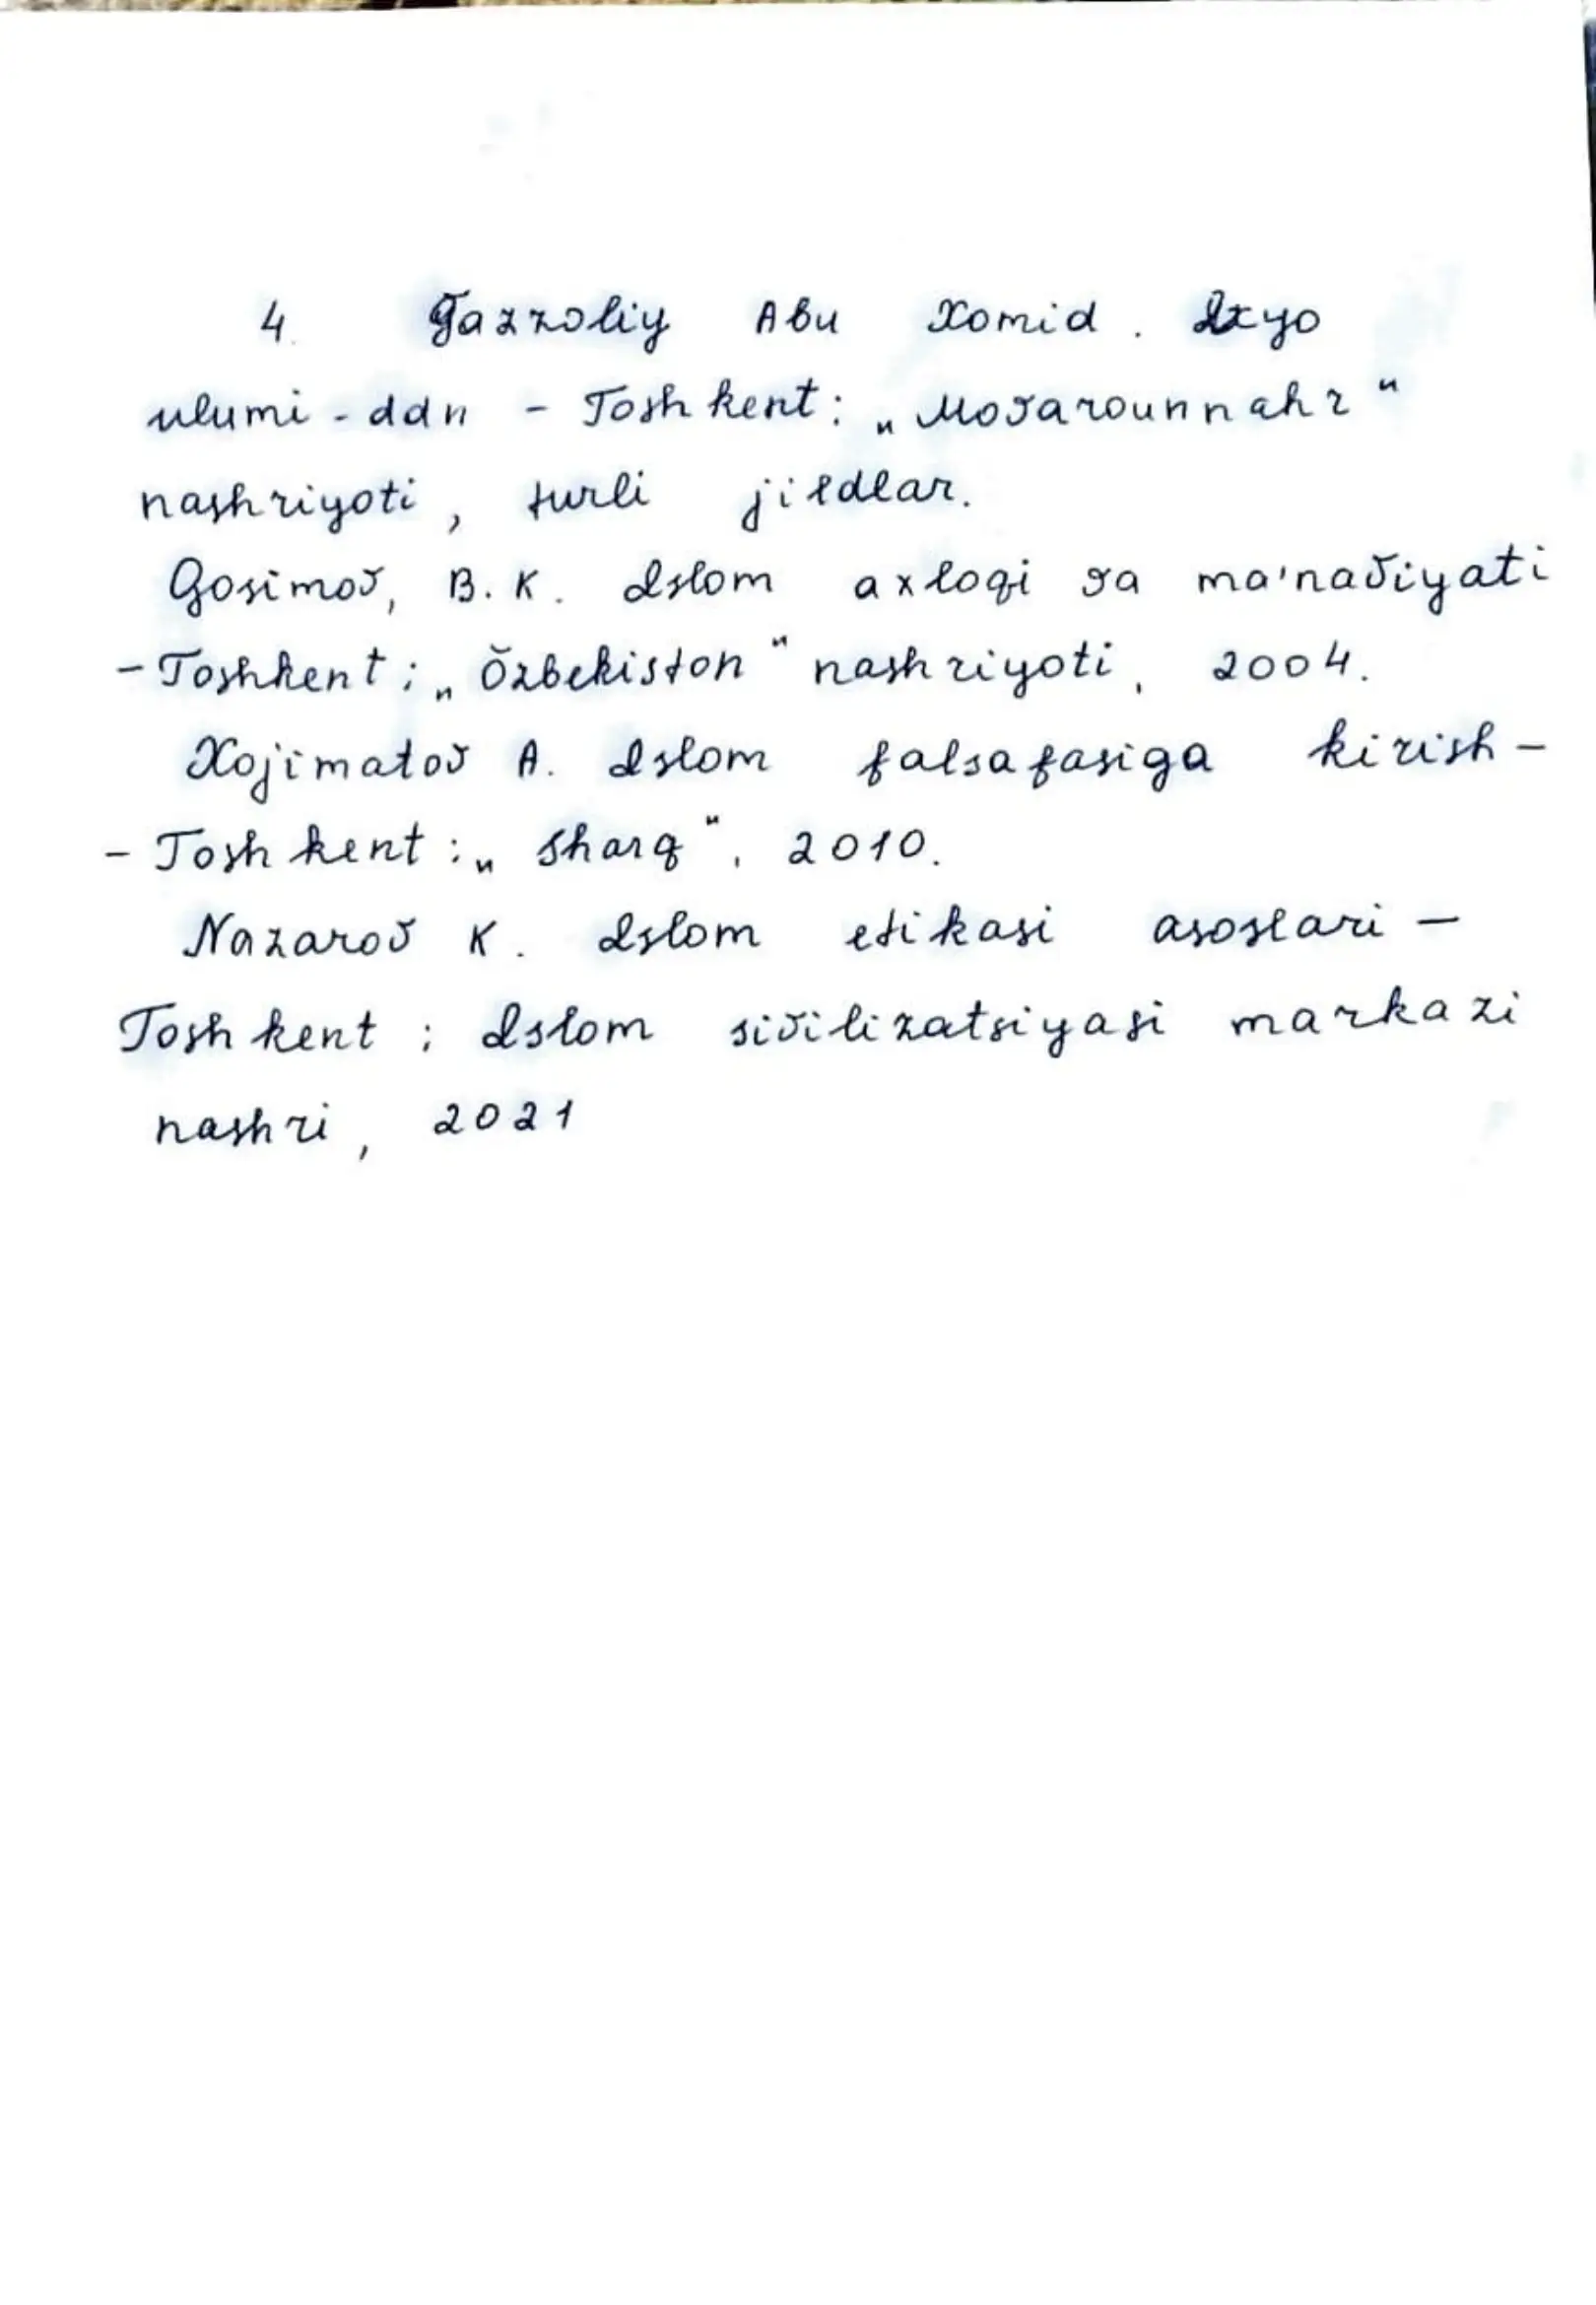 4. Gʻazzoliy Abu Xomid. Ixyo
ulumi-ddn - Toshkent: „Movarounnahr"
nashriyoti, turli jildlar.
Qosimov, B.K. Islom axloqi va ma'naviyati
- Toshkent; „Oʻzbekiston" nashriyoti, 2004.
Xojimatov A. Islom falsafasiga kirish -
- Toshkent: „Sharq", 2010.
Nazarov K. Islom etikasi asoslari -
Toshkent; Islom sivilizatsiyasi markazi
nashri, 2021